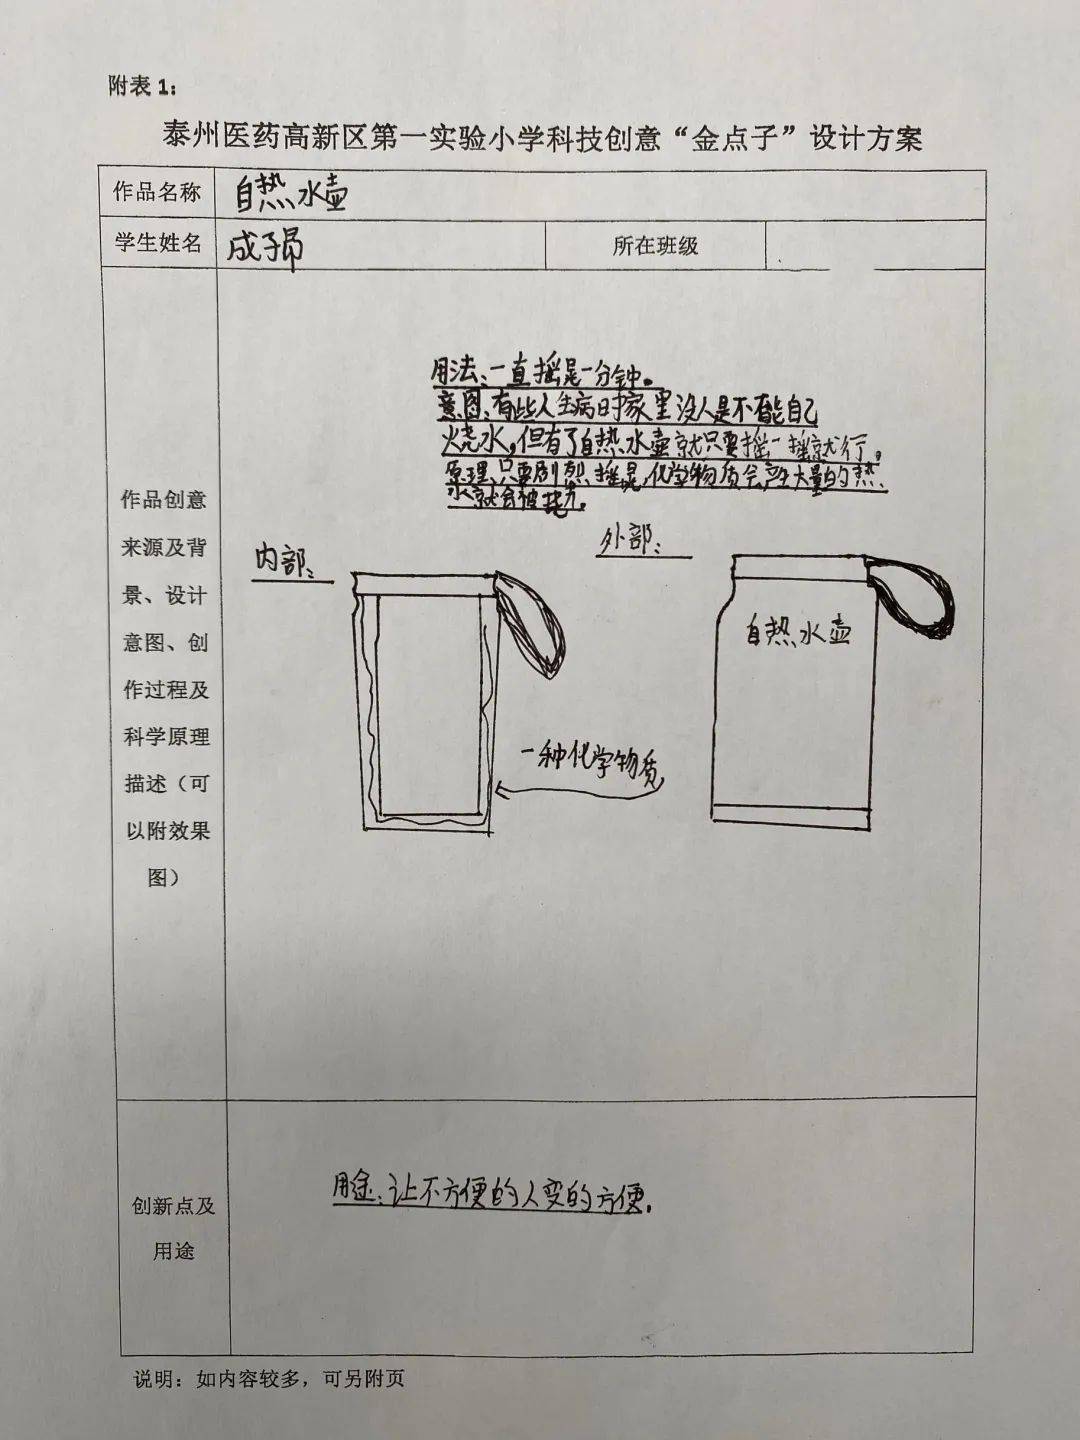 附表1：
泰州医药高新区第一实验小学科技创意“金点子”设计方案
作品名称
自热水壶
学生姓名
成子昂
所在班级
作品创意
来源及背
景、设计
意图、创
作过程及
科学原理
描述（可
以附效果
图）
用法：一直摇晃一分钟。
意图：有些人生病时家里没人是不能自己
烧水，但有了自热水壶就只要摇一摇就行。
原理：只要剧烈摇晃，化学物质会产生大量的热
水就会被
内部：
外部：
自热水壶
一种化学物质
创新点及
用途
用途：让不方便的人变的方便。
说明：如内容较多，可另附页